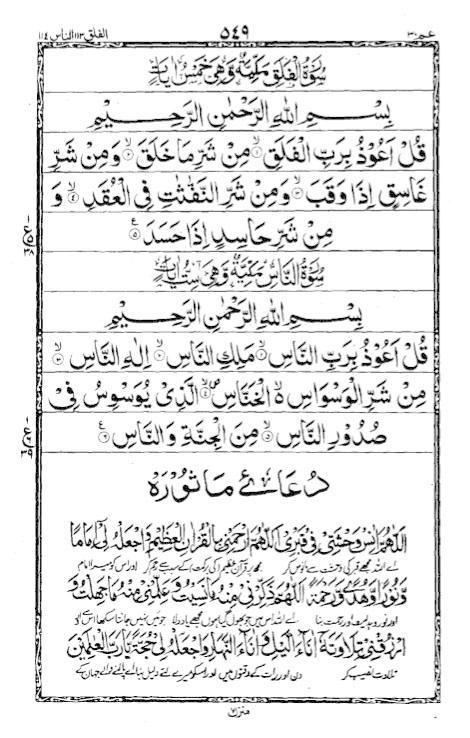 عمّ ٣٠
٥٤٩
الفلق ١١٣ الناس ١١٤
سُوْرَةُ الْفَلَقِ مَكِّيَّةٌ وَّهِيَ خَمْسُ اٰيَاتٍ
بِسْمِ اللهِ الرَّحْمٰنِ الرَّحِيْمِ
قُلْ اَعُوْذُ بِرَبِّ الْفَلَقِ ۙ۱ مِنْ شَرِّ مَا خَلَقَ ۙ۲ وَمِنْ شَرِّ
غَاسِقٍ اِذَا وَقَبَ ۙ۳ وَمِنْ شَرِّ النَّفّٰثٰتِ فِى الْعُقَدِ ۙ۴ وَ
مِنْ شَرِّ حَاسِدٍ اِذَا حَسَدَ ۵
سُوْرَةُ النَّاسِ مَكِّيَّةٌ وَّهِيَ سِتُّ اٰيَاتٍ
بِسْمِ اللهِ الرَّحْمٰنِ الرَّحِيْمِ
قُلْ اَعُوْذُ بِرَبِّ النَّاسِ ۙ۱ مَلِكِ النَّاسِ ۙ۲ اِلٰهِ النَّاسِ ۙ۳
مِنْ شَرِّ الْوَسْوَاسِ ۵ الْخَنَّاسِ ۙ۴ الَّذِىْ يُوَسْوِسُ فِىْ
صُدُوْرِ النَّاسِ ۙ۵ مِنَ الْجِنَّةِ وَالنَّاسِ ۶
دُعَائے مَاثُوْرَہ
اَللّٰهُمَّ اٰنِسْ وَحْشَتِىْ فِىْ قَبْرِىْ اَللّٰهُمَّ ارْحَمْنِىْ بِالْقُرْاٰنِ الْعَظِيْمِ وَاجْعَلْهُ لِىْ اِمَامًا
اے اللہ مجھے قبر کی وحشت سے مانوس کر مجھ پر قرآن عظیم کی برکت کے سبب سے رحم کر اور اس کو میرا امام
وَّنُوْرًا وَّهُدًى وَّرَحْمَةً اَللّٰهُمَّ ذَكِّرْنِىْ مِنْهُ مَا نَسِيْتُ وَعَلِّمْنِىْ مِنْهُ مَا جَهِلْتُ وَ
اور نور وہدایت اور رحمت بنا اے اللہ اس میں جو بھول گیا ہوں مجھے یاد دلا جو میں نہیں جانتا سکھا اس کی
ارْزُقْنِىْ تِلَاوَتَهٗ اٰنَآءَ الَّيْلِ وَاٰنَآءَ النَّهَارِ وَاجْعَلْهُ لِىْ حُجَّةً يَّا رَبَّ الْعٰلَمِيْنَ
تلاوت نصیب کر دن اور رات کے وقتوں میں اور اس کو میرے لئے دلیل بنا اے پالنے والے جہان کے